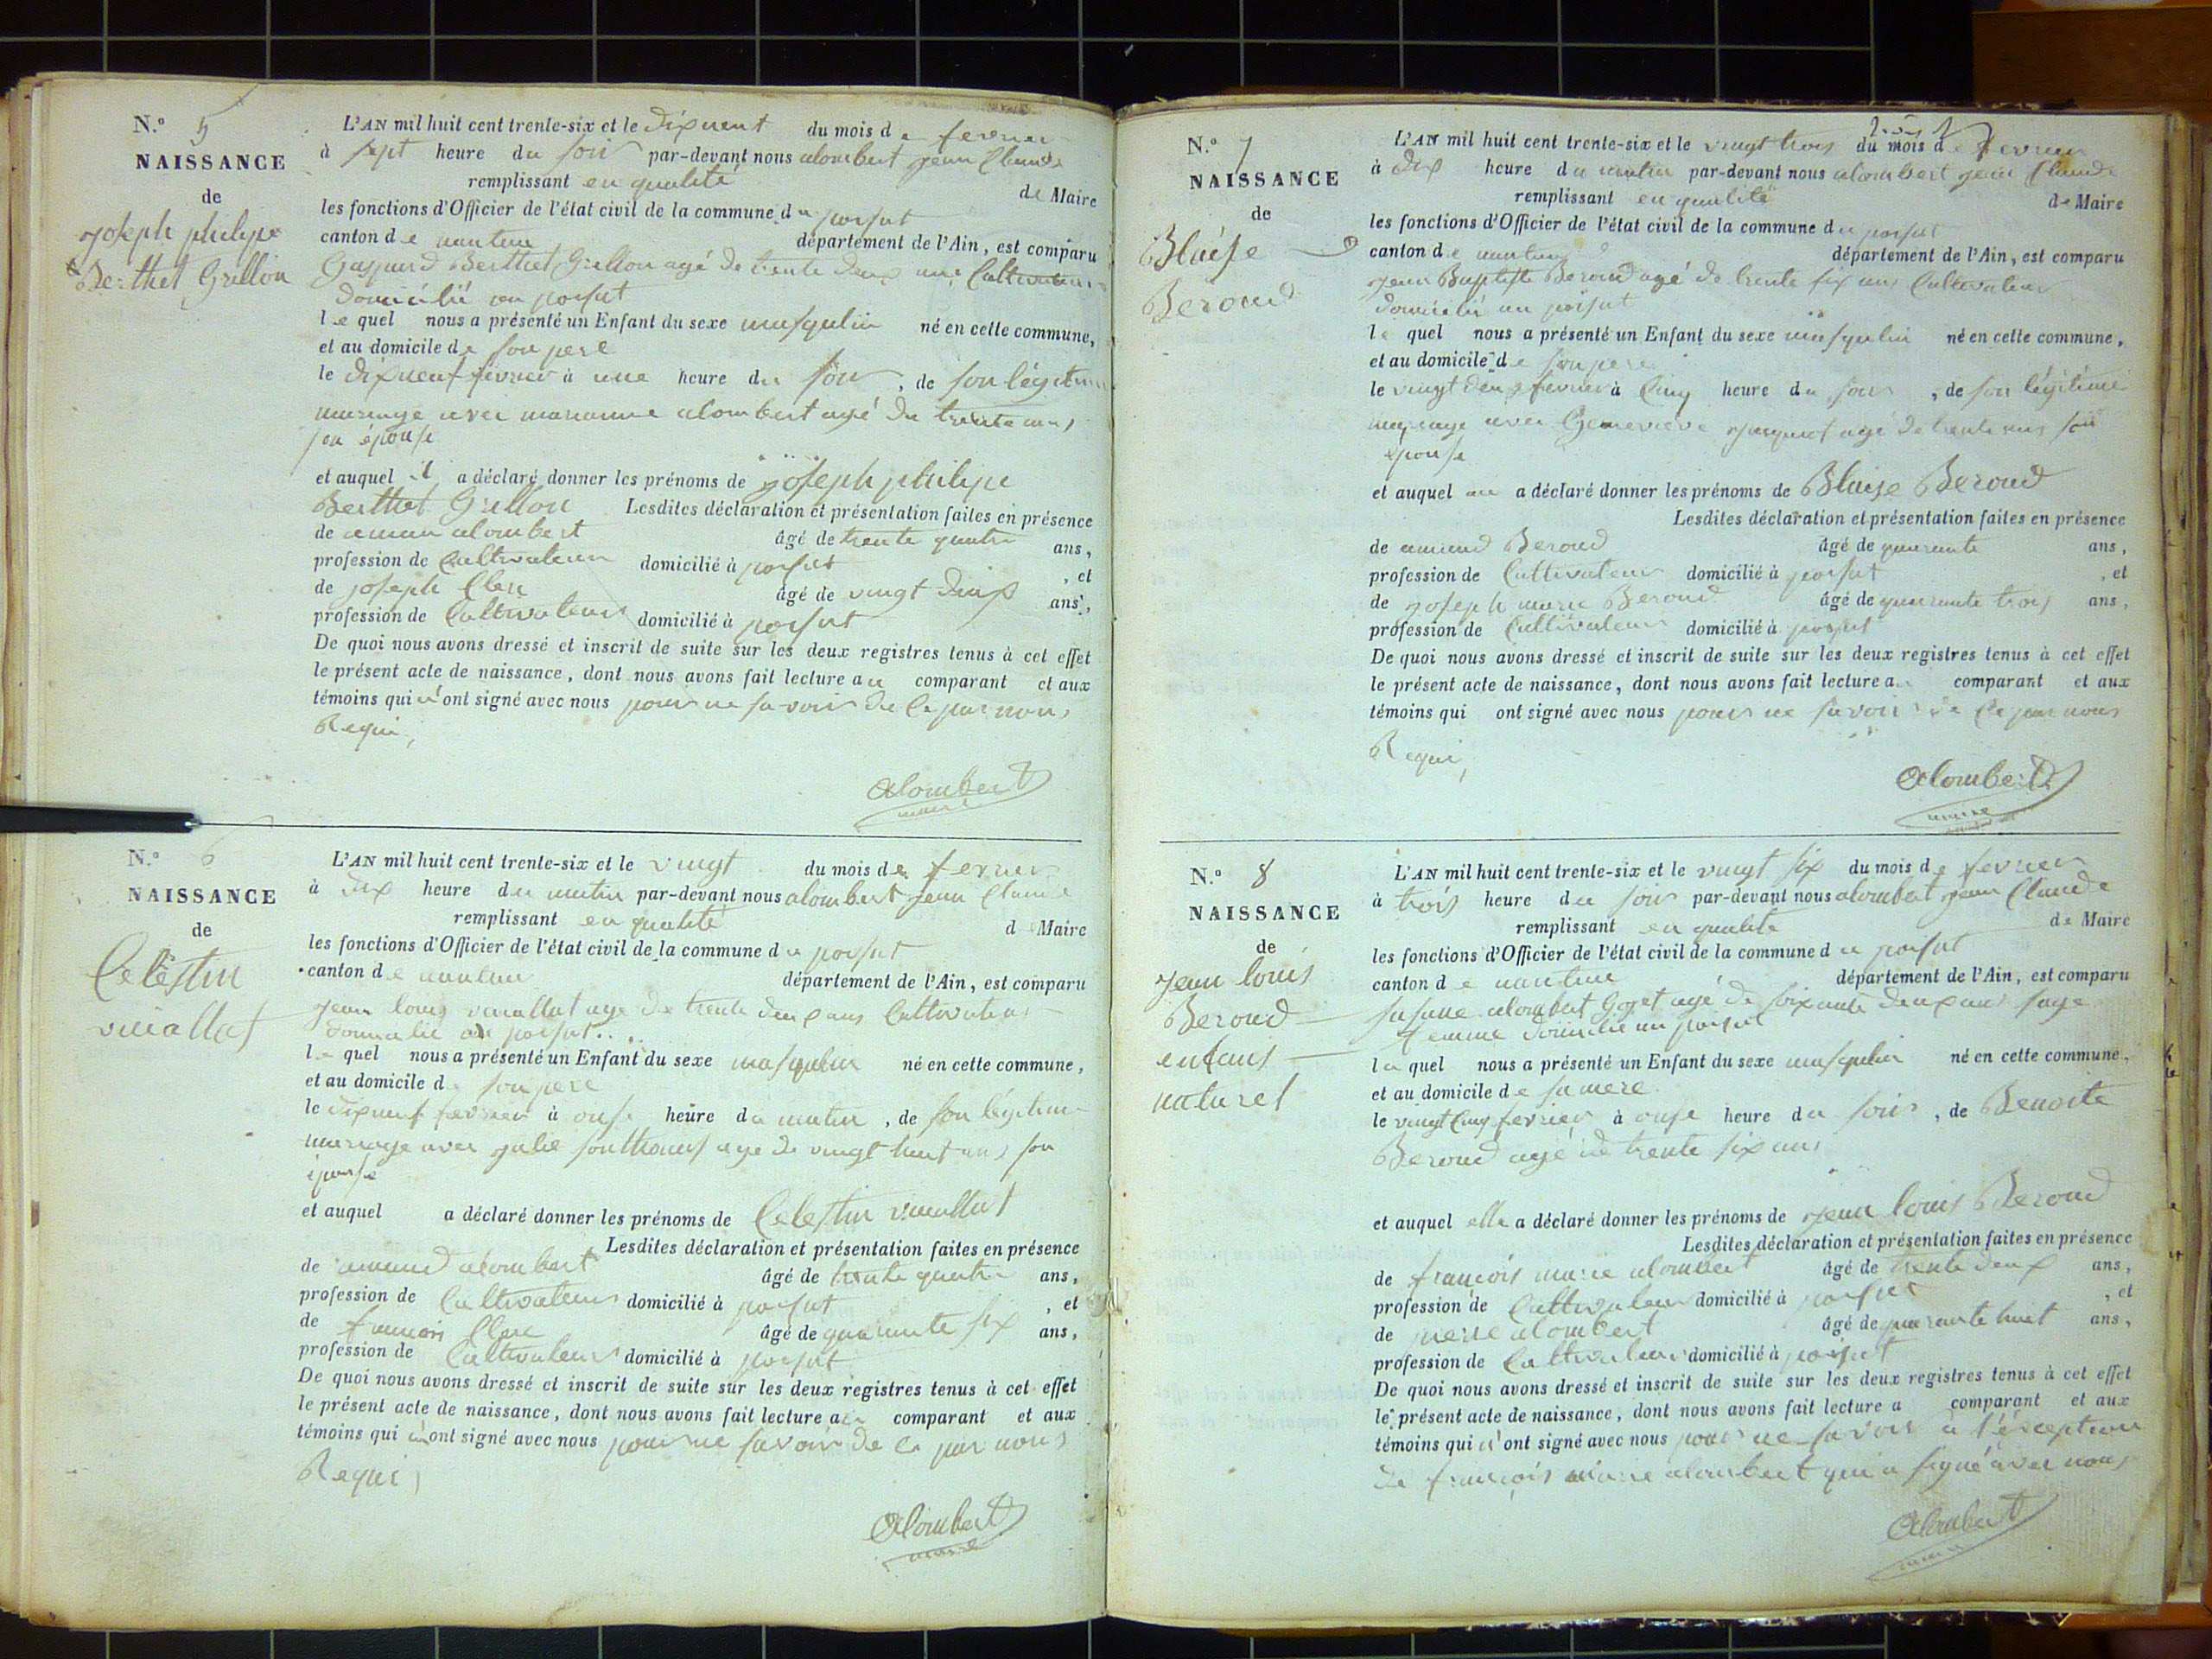 N.º 5
NAISSANCE
de
joseph philipe
Berthet Grillon
L'AN mil huit cent trente-six et le dixneuf du mois de fevrier
à sept heure du soir par-devant nous alombert jean Claude
remplissant en qualité de Maire
les fonctions d'Officier de l'état civil de la commune du poisat
canton de nantua département de l'Ain, est comparu
Gaspard Berthet Grillon agé de trente deux ans Cultivateur
domicilié au poisat
le quel nous a présenté un Enfant du sexe masqulin né en cette commune,
et au domicile de son pere
le dixneuf fevrier à une heure du soir, de son légitime
mariage avec marianne alombert agé de trente ans
son épouse
et auquel il a déclaré donner les prénoms de joseph philipe
Berthet Grillon Lesdites déclaration et présentation faites en présence
de aman alombert âgé de trente quatre ans,
profession de Cultivateur domicilié à poisat, et
de joseph Clerc âgé de vingt deux ans,
profession de Cultivateur domicilié à poisat
De quoi nous avons dressé et inscrit de suite sur les deux registres tenus à cet effet
le présent acte de naissance, dont nous avons fait lecture au comparant et aux
témoins qui n'ont signé avec nous pour ne savoir de ce par nous
Requi,
alombert
maire
N.º 6
NAISSANCE
de
Celéstin
vuiallat
L'AN mil huit cent trente-six et le vingt du mois de fevrier
à dix heure du matin par-devant nous alombert jean Claude
remplissant en qualité d Maire
les fonctions d'Officier de l'état civil de la commune du poisat
canton de nantua département de l'Ain, est comparu
jean louis vuiallat age de trente deux ans Cultivateur
domicilié au poisat
le quel nous a présenté un Enfant du sexe masqulin né en cette commune,
et au domicile de son pere
le dixneuf fevrier à onse heure du matin, de son legitime
mariage avec julie southonax age de vingt huit ans son
épouse
et auquel a déclaré donner les prénoms de Celestin vuiallat
Lesdites déclaration et présentation faites en présence
de amand alombert âgé de trente quatre ans,
profession de Cultivateur domicilié à poisat, et
de francois Clerc âgé de quarante six ans,
profession de Cultivateur domicilié à poisat
De quoi nous avons dressé et inscrit de suite sur les deux registres tenus à cet effet
le présent acte de naissance, dont nous avons fait lecture au comparant et aux
témoins qui n'ont signé avec nous pour ne savoir de ce par nous
Requi,
alombert
maire
N.º 7
NAISSANCE
de
Blaise
Beroud
L'AN mil huit cent trente-six et le vingt trois du mois de fevrier
à dix heure du matin par-devant nous alombert jean Claude
remplissant en qualité de Maire
les fonctions d'Officier de l'état civil de la commune du poisat
canton de nantua département de l'Ain, est comparu
jean Baptiste Beroud agé de trente six ans Cultivateur
domicilié au poisat
le quel nous a présenté un Enfant du sexe masqulin né en cette commune,
et au domicile de son pere
le vingt deux fevrier à Cinq heure du soir, de son légitime
mariage avec Genevieve jacquiot agé de trente ans son
épouse
et auquel a déclaré donner les prénoms de Blaise Beroud
Lesdites déclaration et présentation faites en présence
de amand Beroud âgé de quarante ans,
profession de Cultivateur domicilié à poisat, et
de joseph marie Beroud âgé de quarante trois ans,
profession de Cultivateur domicilié à poisat
De quoi nous avons dressé et inscrit de suite sur les deux registres tenus à cet effet
le présent acte de naissance, dont nous avons fait lecture a comparant et aux
témoins qui ont signé avec nous pour ne savoir de ce par nous
Requi,
alombert
maire
N.º 8
NAISSANCE
de
jean louis
Beroud
enfans
naturel
L'AN mil huit cent trente-six et le vingt six du mois de fevrier
à trois heure du soir par-devant nous alombert jean Claude
remplissant en qualité de Maire
les fonctions d'Officier de l'état civil de la commune du poisat
canton de nantua département de l'Ain, est comparu
susane alombert Goyet agé de soixante deux ans sage
femme domicilié au poisat
la quel nous a présenté un Enfant du sexe masqulin né en cette commune,
et au domicile de sa mere
le vingt Cinq fevrier à onse heure du soir, de Benoite
Beroud agé de trente six ans
et auquel elle a déclaré donner les prénoms de jean louis Beroud
Lesdites déclaration et présentation faites en présence
de françois marie alombert âgé de trente deux ans,
profession de Cultivateur domicilié à poisat, et
de pierre alombert âgé de quarante huit ans,
profession de Cultivateur domicilié à poisat
De quoi nous avons dressé et inscrit de suite sur les deux registres tenus à cet effet
le présent acte de naissance, dont nous avons fait lecture a comparant et aux
témoins qui n'ont signé avec nous pour ne savoir à l'éxception
de françois marie alombert qui a signé avec nous
alombert
maire